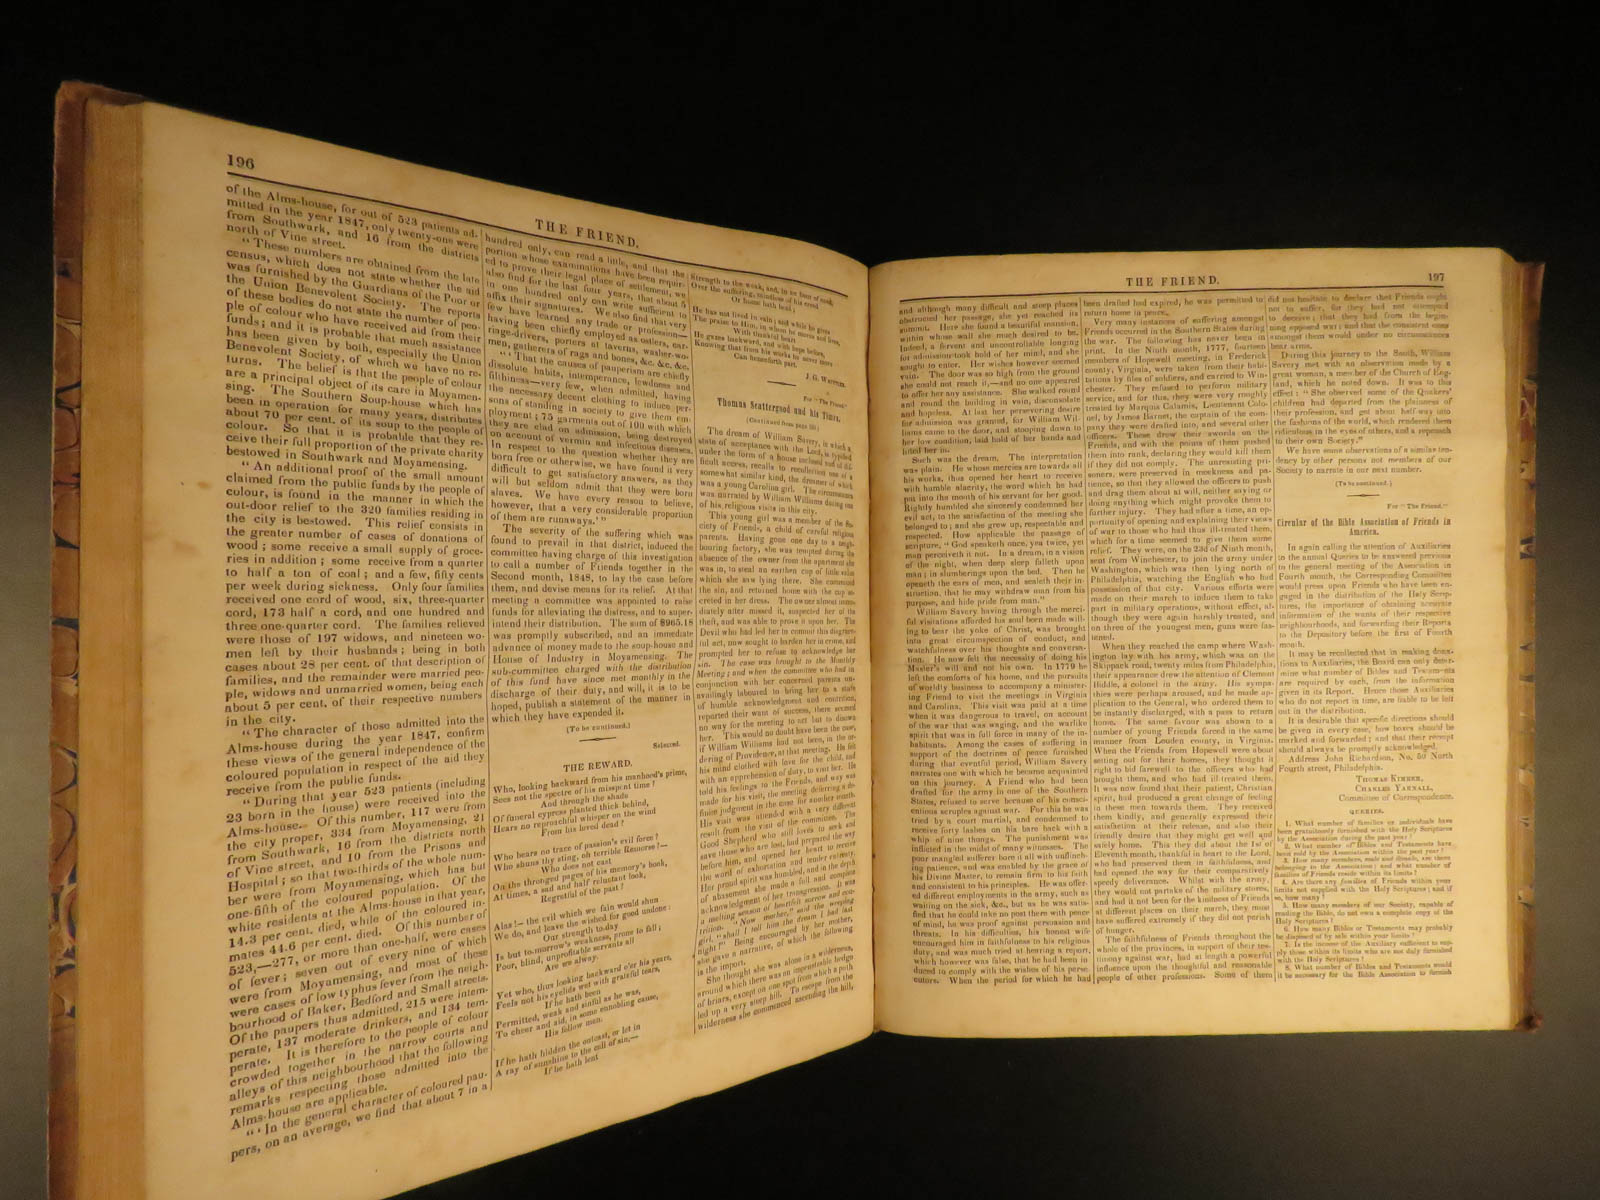 196
THE FRIEND.
of the Alms-house, for out of 523 patients ad-
mitted in the year 1847, only twenty-one were
from Southwark, and 16 from the districts
north of Vine street.
"These numbers are obtained from the late
census, which does not state whether the aid
was furnished by the Guardians of the Poor or
the Union Benevolent Society. The reports
of these bodies do not state the number of peo-
ple of colour who have received aid from their
funds; and it is probable that much assistance
has been given by both, especially the Union
Benevolent Society, of which we have no re-
turns. The belief is that the people of colour
are a principal object of its care in Moyamen-
sing. The Southern Soup-house which has
been in operation for many years, distributes
about 70 per cent. of its soup to the people of
colour. So that it is probable that they re-
ceive their full proportion of the private charity
bestowed in Southwark and Moyamensing.
"An additional proof of the small amount
claimed from the public funds by the people of
colour, is found in the manner in which the
out-door relief to the 320 families residing in
the city is bestowed. This relief consists in
the greater number of cases of donations of
wood; some receive a small supply of groce-
ries in addition; some receive from a quarter
to half a ton of coal; and a few, fifty cents
per week during sickness. Only four families
received one cord of wood, six, three-quarter
cord, 173 half a cord, and one hundred and
three one-quarter cord. The families relieved
were those of 197 widows, and nineteen wo-
men left by their husbands; being in both
cases about 28 per cent. of that description of
families, and the remainder were married peo-
ple, widows and unmarried women, being each
about 5 per cent. of their respective numbers
in the city.
"The character of those admitted into the
Alms-house during the year 1847, confirm
these views of the general independence of the
coloured population in respect of the aid they
receive from the public funds.
"During that year 523 patients (including
23 born in the house) were received into the
Alms-house. Of this number, 117 were from
the city proper, 334 from Moyamensing, 21
from Southwark, 16 from the districts north
of Vine street, and 10 from the Prisons and
Hospital; so that two-thirds of the whole num-
ber were from Moyamensing, which has but
one-fifth of the coloured population. Of the
white residents at the Alms-house in that year,
14.3 per cent. died, while of the coloured in-
mates 44.6 per cent. died. Of this number of
523,—277, or more than one-half, were cases
of fever; seven out of every nine of which
were from Moyamensing, and most of these
were cases of low typhus fever from the neigh-
bourhood of Baker, Bedford and Small streets.
Of the paupers thus admitted, 215 were intem-
perate, 137 moderate drinkers, and 134 tem-
perate. It is therefore to the people of colour
crowded together in the narrow courts and
alleys of this neighbourhood that the following
remarks respecting those admitted into the
Alms-house are applicable.
"'In the general character of coloured pau-
pers, on an average, we find that about 7 in a
hundred only, can read a little, and that the
portion whose examinations have been requir-
ed to prove their legal place of settlement, we
also find for the last four years, that about 5
in one hundred only can write sufficient to
affix their signatures. We also find that very
few have learned any trade or profession—
having been chiefly employed as ostlers, car-
riage-drivers, porters at taverns, washer-wo-
men, gatherers of rags and bones, &c. &c. &c.
"'That the causes of pauperism are chiefly
dissolute habits, intemperance, lewdness and
filthiness—very few, when admitted, having
the necessary decent clothing to induce per-
sons of standing in society to give them em-
ployment; 75 garments out of 100 with which
they are clad on admission, being destroyed
on account of vermin and infectious diseases.
In respect to the question whether they are
born free or otherwise, we have found it very
difficult to get satisfactory answers, as they
will but seldom admit that they were born
slaves. We have every reason to believe,
however, that a very considerable proportion
of them are runaways.'"
The severity of the suffering which was
found to prevail in that district, induced the
committee having charge of this investigation
to call a number of Friends together in the
Second month, 1848, to lay the case before
them, and devise means for its relief. At that
meeting a committee was appointed to raise
funds for alleviating the distress, and to super-
intend their distribution. The sum of $965.18
was promptly subscribed, and an immediate
advance of money made to the soup-house and
House of Industry in Moyamensing. The
sub-committee charged with the distribution
of this fund have since met monthly in the
discharge of their duty, and will, it is to be
hoped, publish a statement of the manner in
which they have expended it.
(To be continued.)
Selected.
THE REWARD.
Who, looking backward from his manhood's prime,
Sees not the spectre of his misspent time?
And through the shade
Of funeral cypress planted thick behind,
Hears no reproachful whisper on the wind
From his loved dead?
Who bears no trace of passion's evil force?
Who shuns thy sting, oh terrible Remorse!—
Who does not cast
On the thronged pages of his memory's book,
At times, a sad and half reluctant look,
Regretful of the past?
Alas!—the evil which we fain would shun
We do, and leave the wished for good undone:
Our strength to-day
Is but to-morrow's weakness, prone to fall;
Poor, blind, unprofitable servants all
Are we alway.
Yet who, thus looking backward o'er his years,
Feels not his eyelids wet with grateful tears,
If he hath been
Permitted, weak and sinful as he was,
To cheer and aid, in some ennobling cause,
His fellow men.
If he hath hidden the outcast, or let in
A ray of sunshine to the cell of sin;—
If he hath lent
Strength to the weak, and, in an hour of need,
Over the suffering, mindless of his creed
Or home hath bent;
He has not lived in vain; and while he gives
The praise to Him, in whom he moves and lives,
With thankful heart
He gazes backward, and with hope before,
Knowing that from his works he never more
Can henceforth part.
J. G. Whittier.
For "The Friend."
Thomas Scattergood and his Times.
The dream of William Savery, in which a
state of acceptance with the Lord, is typified
under the form of a house inclosed and of dif-
ficult access, recalls to recollection one of a
somewhat similar kind, the dreamer of which
was a young Carolina girl. The circumstance
was narrated by William Williams during one
of his religious visits in this city.
This young girl was a member of the So-
ciety of Friends, a child of careful religious
parents. Having gone one day to a neigh-
bouring factory, she was tempted during the
absence of the owner from the apartment she
was in, to steal an earthen cup of little value
which she saw lying there. She committed
the sin, and returned home with the cup se-
creted in her dress. The owner almost imme-
diately after missed it, suspected her of the
theft, and was able to prove it upon her. The
Devil who had led her to commit this disgrace-
ful act, now sought to harden her in crime, and
prompted her to refuse to acknowledge her
sin. The case was brought to the Monthly
Meeting; and when the committee who had in
conjunction with her concerned parents un-
availingly laboured to bring her to a state
of humble acknowledgment and contrition,
reported their want of success, there seemed
no way for the meeting to act but to disown
her. This would no doubt have been the case,
if William Williams had not been, in the or-
dering of Providence, at that meeting. He felt
his mind clothed with love for the child, and
with an apprehension of duty, to visit her. He
told his feelings to the Friends, and way was
made for his visit, the meeting deferring a de-
finite judgment in the case for another month.
His visit was attended with a very different
result from the visit of the committee. The
Good Shepherd who still loves to seek and
save those who are lost, had prepared the way
before him, and opened her heart to receive
the word of exhortation and tender entreaty.
Her proud spirit was humbled, and in the depth
of abasement she made a full and complete
acknowledgment of her transgression. It was
a melting season of heartfelt sorrow and con-
trition. "Now mother," said the weeping
girl, "shall I tell him the dream I had last
night?" Being encouraged by her mother,
she gave a narrative, of which the following
is the import.
She thought she was alone in a wilderness,
around which there was an impenetrable hedge
of briars, except on one spot from which a path
led up a very steep hill. To escape from the
wilderness she commenced ascending the hill,
THE FRIEND.
197
and although many difficult and steep places
obstructed her passage, she yet reached its
summit. Here she found a beautiful mansion,
within whose wall she much desired to be.
Indeed, a fervent and uncontrollable longing
for admission took hold of her mind, and she
sought to enter. Her wishes however seemed
vain. The door was so high from the ground
she could not reach it,—and no one appeared
to offer her any assistance. She walked round
and round the building in vain, disconsolate
and hopeless. At last her persevering desire
for admission was granted, for William Wil-
liams came to the door, and stooping down to
her low condition, laid hold of her hands and
lifted her in.
Such was the dream. The interpretation
was plain. He whose mercies are towards all
his works, thus opened her heart to receive
with humble alacrity, the word which he had
put into the month of his servant for her good.
Rightly humbled she sincerely condemned her
evil act, to the satisfaction of the meeting she
belonged to; and she grew up, respectable and
respected. How applicable the passage of
scripture, "God speaketh once, yea twice, yet
man perceiveth it not. In a dream, in a vision
of the night, when deep sleep falleth upon
man; in slumberings upon the bed. Then he
openeth the ears of men, and sealeth their in-
struction, that he may withdraw man from his
purpose, and hide pride from man."
William Savery having through the merci-
ful visitations afforded his soul been made will-
ing to bear the yoke of Christ, was brought
into great circumspection of conduct, and
watchfulness over his thoughts and conversa-
tion. He now felt the necessity of doing his
Master's will and not his own. In 1779 he
left the comforts of his home, and the pursuits
of worldly business to accompany a minister-
ing Friend to visit the meetings in Virginia
and Carolina. This visit was paid at a time
when it was dangerous to travel, on account
of the war that was waging, and the warlike
spirit that was in full force in many of the in-
habitants. Among the cases of suffering in
support of the doctrines of peace furnished
during that eventful period, William Savery
narrates one with which he became acquainted
in this journey. A Friend who had been
drafted for the army in one of the Southern
States, refused to serve because of his consci-
entious scruples against war. For this he was
tried by a court martial, and condemned to
receive forty lashes on his bare back with a
whip of nine thongs. The punishment was
inflicted in the midst of many witnesses. The
poor mangled sufferer bore it all with unflinch-
ing patience, and was enabled by the grace of
his Divine Master, to remain firm in his faith
and consistent to his principles. He was offer-
ed different employments in the army, such as
waiting on the sick, &c., but as he was satis-
fied that he could take no post there with peace
of mind, he was proof against persuasion and
threats. In his difficulties, his honest wife
encouraged him in faithfulness to his religious
duty, and was much tried at hearing a report,
which however was false, that he had been in-
duced to comply with the wishes of his perse-
cutors. When the period for which he had
been drafted had expired, he was permitted to
return home in peace.
Very many instances of suffering amongst
Friends occurred in the Southern States during
the war. The following has never been in
print. In the Ninth month, 1777, fourteen
members of Hopewell meeting, in Frederick
county, Virginia, were taken from their habi-
tations by files of soldiers, and carried to Win-
chester. They refused to perform military
service, and for this, they were very roughly
treated by Marquis Calumis, Lieutenant Colo-
nel, by James Barnet, the captain of the com-
pany they were drafted into, and several other
officers. These drew their swords on the
Friends, and with the points of them pushed
them into rank, declaring they would kill them
if they did not comply. The unresisting pri-
soners, were preserved in meekness and pa-
tience, so that they allowed the officers to push
and drag them about at will, neither saying or
doing anything which might provoke them to
further injury. They had after a time, an op-
portunity of opening and explaining their views
of war to those who had thus ill-treated them,
which for a time seemed to give them some
relief. They were, on the 23d of Ninth month,
sent from Winchester, to join the army under
Washington, which was then lying north of
Philadelphia, watching the English who had
possession of that city. Various efforts were
made on their march to induce them to take
part in military operations, without effect, al-
though they were again harshly treated, and
on three of the youngest men, guns were fas-
tened.
When they reached the camp where Wash-
ington lay with his army, which was on the
Skippack road, twenty miles from Philadelphia,
their appearance drew the attention of Clement
Biddle, a colonel in the army. His sympa-
thies were perhaps aroused, and he made ap-
plication to the General, who ordered them to
be instantly discharged, with a pass to return
home. The same favour was shown to a
number of young Friends forced in the same
manner from Louden county, in Virginia.
When the Friends from Hopewell were about
setting out for their homes, they thought it
right to bid farewell to the officers who had
brought them, and who had ill-treated them.
It was now found that their patient, Christian
spirit, had produced a great change of feeling
in these men towards them. They received
them kindly, and generally expressed their
satisfaction at their release, and also their
friendly desire that they might get well and
safely home. This they did about the 1st of
Eleventh month, thankful in heart to the Lord,
who had preserved them in faithfulness, and
had opened the way for their comparatively
speedy deliverance. Whilst with the army,
they would not partake of the military stores,
and had it not been for the kindness of Friends
at different places on their march, they must
have suffered extremely if they did not perish
of hunger.
The faithfulness of Friends throughout the
whole of the provinces, in support of their tes-
timony against war, had at length a powerful
influence upon the thoughtful and reasonable
people of other professions. Some of them
did not hesitate to declare that Friends ought
not to suffer, for they had not attempted
to deceive; that they had from the begin-
ning opposed war; and that the consistent ones
amongst them would under no circumstances
bear arms.
During this journey to the South, William
Savery met with an observation made by a
great woman, a member of the Church of Eng-
land, which he noted down. It was to this
effect: "She observed some of the Quakers'
children had departed from the plainness of
their profession, and got about half-way into
the fashions of the world, which rendered them
ridiculous in the eyes of others, and a reproach
to their own Society."
We have some observations of a similar ten-
dency by other persons not members of our
Society to narrate in our next number.
(To be continued.)
For "The Friend."
Circular of the Bible Association of Friends in
America.
In again calling the attention of Auxiliaries
to the annual Queries to be answered previous
to the general meeting of the Association in
Fourth month, the Corresponding Committee
would press upon Friends who have been en-
gaged in the distribution of the Holy Scrip-
tures, the importance of obtaining accurate
information of the wants of their respective
neighbourhoods, and forwarding their Reports
to the Depository before the first of Fourth
month.
It may be recollected that in making dona-
tions to Auxiliaries, the Board can only deter-
mine what number of Bibles and Testaments
are required by each, from the information
given in its Report. Hence those Auxiliaries
who do not report in time, are liable to be left
out in the distribution.
It is desirable that specific directions should
be given in every case, how boxes should be
marked and forwarded; and that their receipt
should always be promptly acknowledged.
Address John Richardson, No. 50 North
Fourth street, Philadelphia.
Thomas Kimber,
Charles Yarnall,
Committee of Correspondence.
QUERIES.
1. What number of families or individuals have
been gratuitously furnished with the Holy Scriptures
by the Association during the past year?
2. What number of Bibles and Testaments have
been sold by the Association within the past year?
3. How many members, male and female, are there
belonging to the Association; and what number of
families of Friends reside within its limits?
4. Are there any families of Friends within your
limits not supplied with the Holy Scriptures; and if
so, how many?
5. How many members of our Society, capable of
reading the Bible, do not own a complete copy of the
Holy Scriptures?
6. How many Bibles or Testaments may probably
be disposed of by sale within your limits?
7. Is the income of the Auxiliary sufficient to sup-
ply those within its limits who are not duly furnished
with the Holy Scriptures?
8. What number of Bibles and Testaments would
it be necessary for the Bible Association to furnish